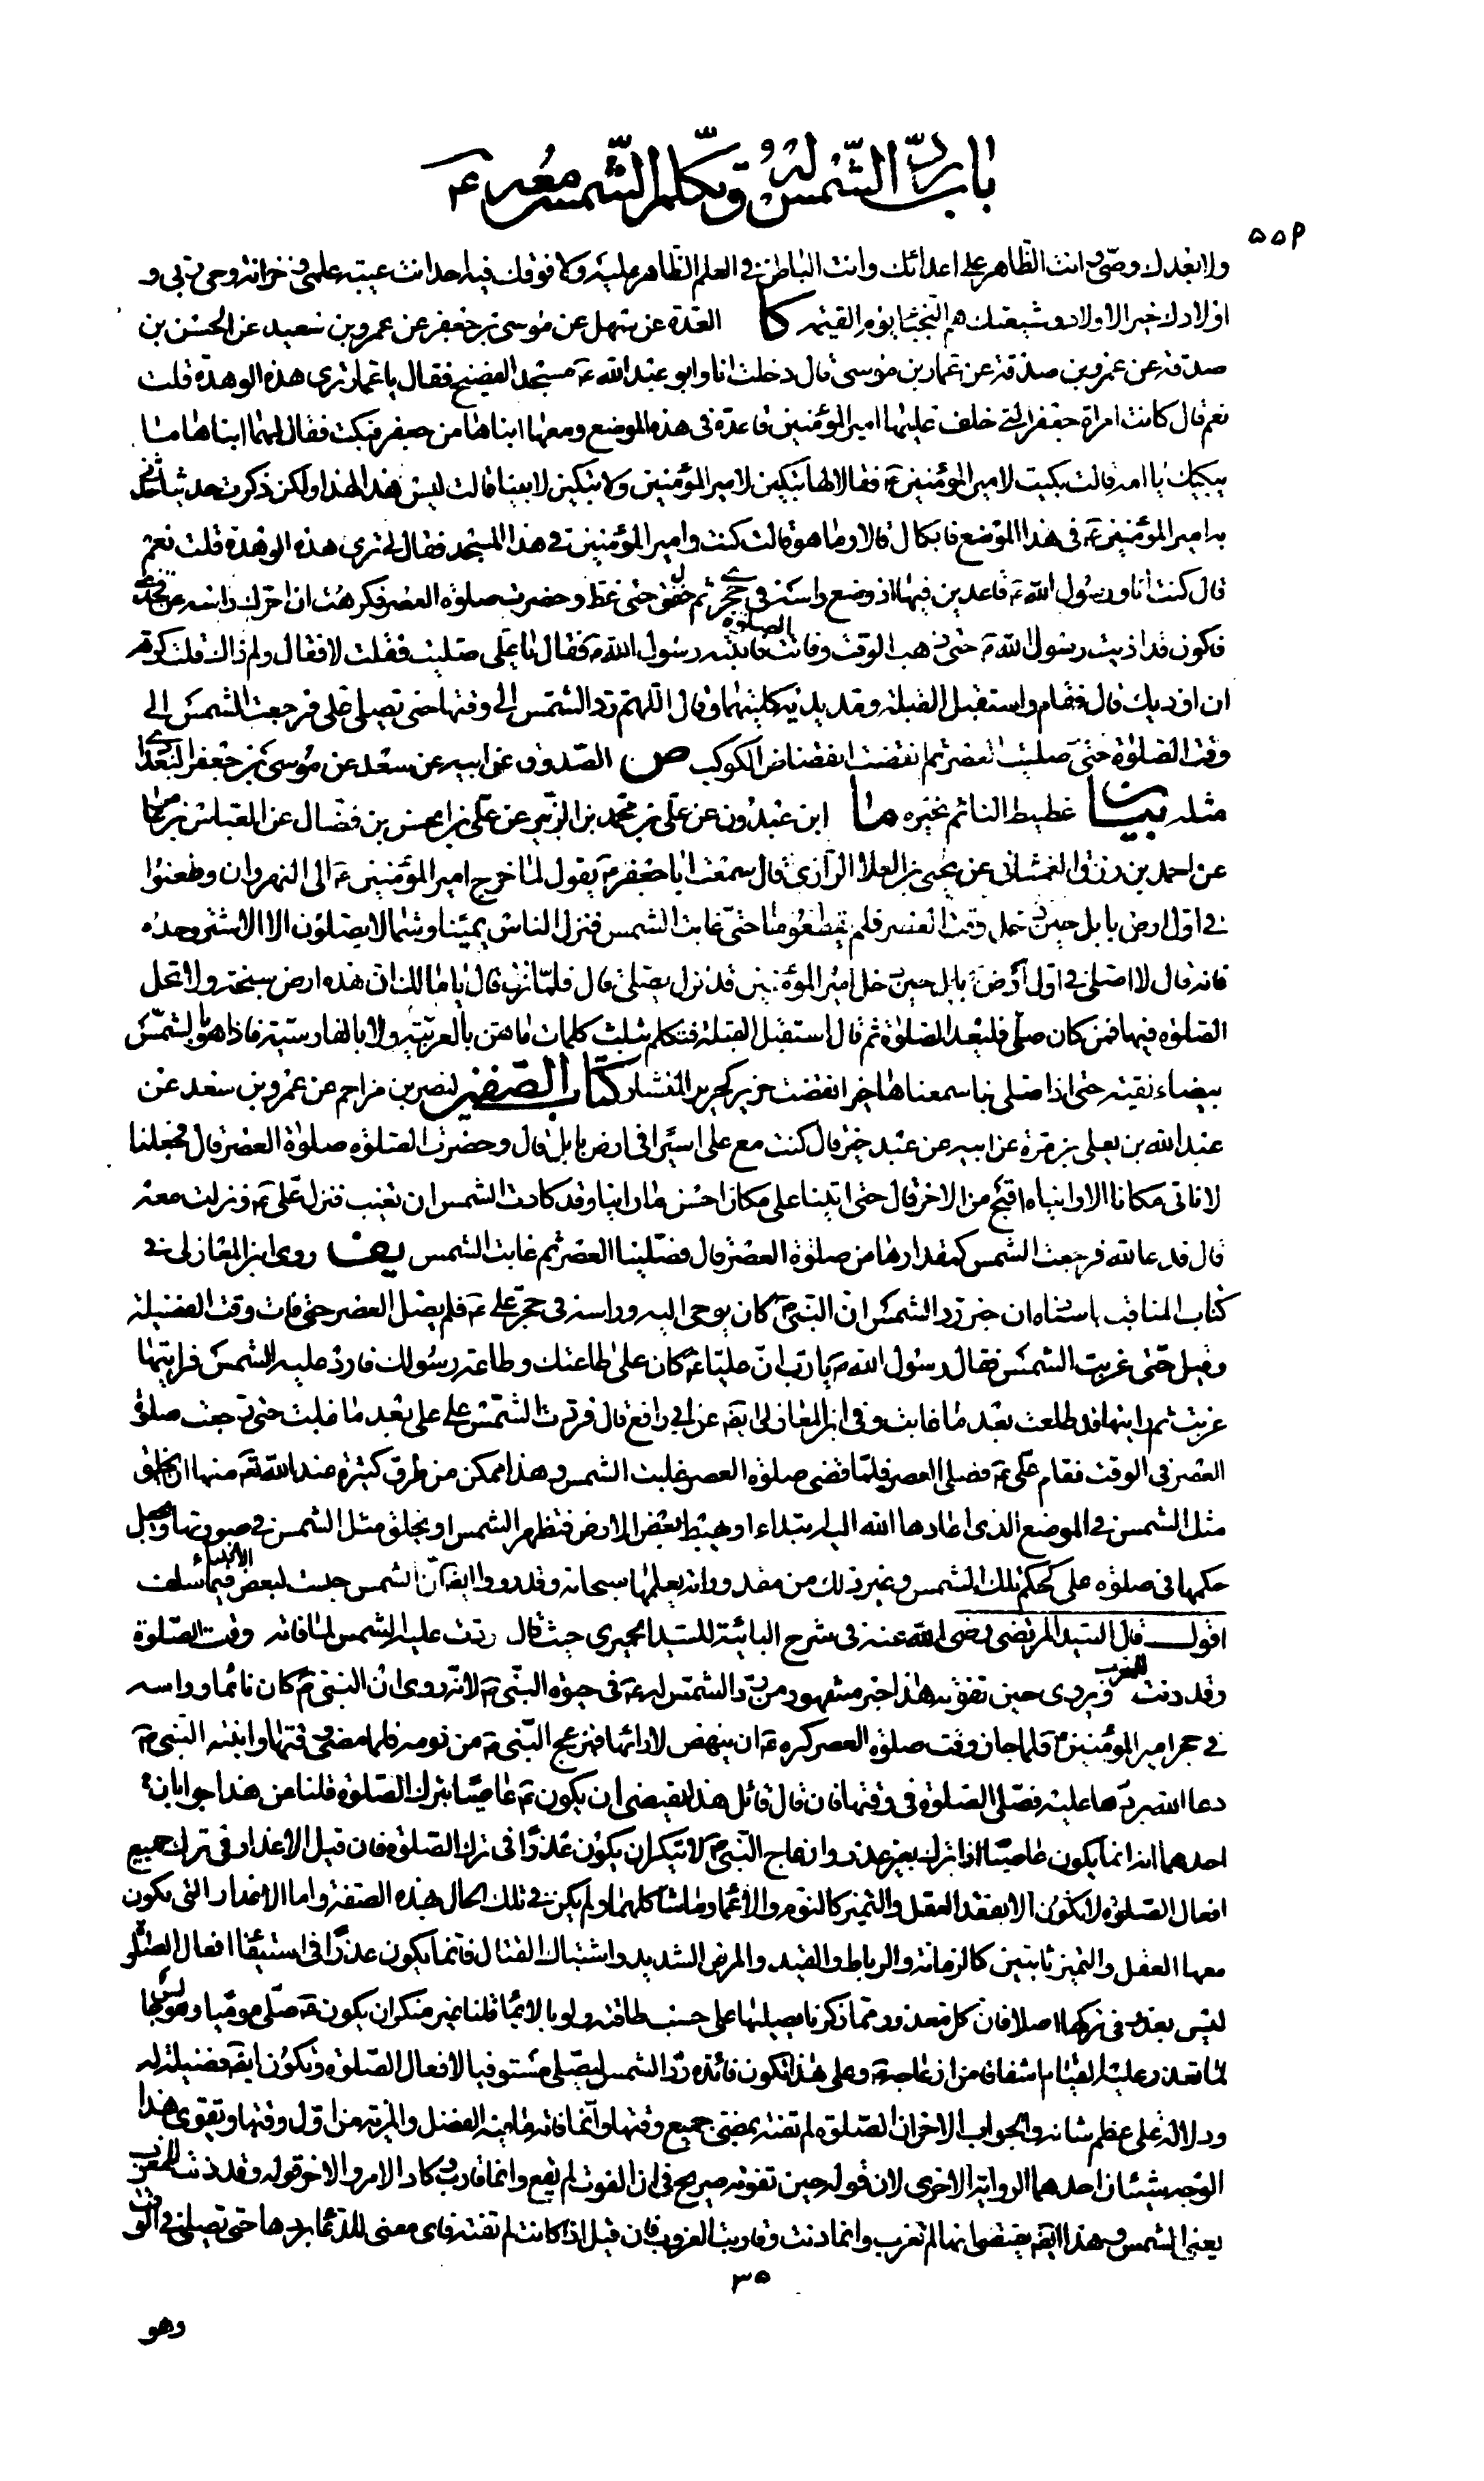 باب ردّ الشّمس له و تكلّم الشّمس معه ع
٥٥٩
ولا بعدك وصيّ انت الظاهر على اعدائك وانت الباطن في العلم الظاهر عليه ولا فوقك فيه احد انت عيبة علمي وخزانة وحي ربي و
اولادك خير الاولاد وشيعتك هم النجباء يوم القيمة كا العدة عن سهل عن موسى بن جعفر عن عمرو بن سعيد عن الحسن بن
صدقة عن عمرو بن صدقة عن عمار بن موسى قال دخلت انا وابو عبد الله ع مسجد الفضيخ فقال يا عمار ترى هذه الوهدة قلت
نعم قال كانت امراة جعفر التي خلف عليها امير المؤمنين قاعدة في هذا الموضع ومعها ابناها من جعفر فبكت فقال لها ابناها ما
يبكيك يا امه قالت بكيت لامير المؤمنين ع فقالا لها تبكين لامير المؤمنين ولا تبكين لابينا قالت ليس هذا لهذا ولكن ذكرت حديثا حدثني
به امير المؤمنين ع في هذا الموضع فابكاني قالا وما هو قالت كنت وامير المؤمنين في هذا المسجد فقال لي ترى هذه الوهدة قلت نعم
قال كنت انا ورسول الله ص قاعدين فيها اذ وضع راسه في حجري ثم خفق حتى غط وحضرت صلوة العصر فكرهت ان احرك راسه عن فخذي
فاكون قد اذيت رسول الله ص حتى ذهب الوقت وفاتت الصلوة فانتبه رسول الله ص فقال يا علي صليت فقلت لا فقال ولم ذاك قلت كرهت
ان اوذيك قال فقام واستقبل القبلة ومد يديه كلتيهما وقال اللهم رد الشمس الى وقتها حتى يصلي علي فرجعت الشمس الى
وقت الصلوة حتى صليت العصر ثم انقضت انقضاض الكوكب ص الصدوق عن ابيه عن سعد عن موسى بن جعفر البغدادي
مثله بيان غطيط النائم نخيره ما ابن عبدون عن علي بن محمد بن الزبير عن علي بن الحسن بن فضال عن العباس بن عامر
عن احمد بن رزق الغمشاني عن يحيى بن العلا الرازي قال سمعت ابا جعفر ع يقول لما خرج امير المؤمنين ع الى النهروان وطعنوا
في اول ارض بابل حين دخل وقت العصر فلم يقطعوها حتى غابت الشمس فنزل الناس يمينا وشمالا يصلون الا الاشتر وحده
فانه قال لا اصلي في اول ارض بابل حين دخل امير المؤمنين قد نزل يصلي قال فلما نزل قال يا مالك ان هذه ارض سبخة ولا تحل
الصلوة فيها فمن كان صلى فليعد الصلوة ثم قال استقبل القبلة فتكلم بثلث كلمات ما هن بالعربية ولا بالفارسية فاذا هو بالشمس
بيضاء نقية حتى اذا صلى بنا سمعنا لها حين انقضت خريرا كخرير المنشار كتاب الصفين لنصر بن مزاحم عن عمرو بن سعد عن
عبد الله بن يعلى بن مرة عن ابيه عن عبد خير قال كنت مع علي اسير في ارض بابل قال وحضرت الصلوة صلوة العصر قال فجعلنا
لا ناتي مكانا الا رايناه اقبح من الاخر قال حتى اتينا على مكان احسن ما راينا وقد كادت الشمس ان تغيب فنزل علي ع ونزلت معه
قال فدعا الله فرجعت الشمس كمقدارها من صلوة العصر قال فصلينا العصر ثم غابت الشمس يف روى ابن المغازلي في
كتاب المناقب باسناده ان خبر رد الشمس ان النبي ص كان يوحى اليه وراسه في حجر علي ع فلم يصل العصر حتى فات وقت الفضيلة
وقيل حتى غربت الشمس فقال رسول الله ص يا رب ان عليا ع كان على طاعتك وطاعة رسولك فاردد عليه الشمس فرايتها
غربت ثم رايتها قد طلعت بعد ما غابت وفي ابن المغازلي ايضا عن ابي رافع قال فردت الشمس على علي بعد ما غابت حتى رجعت صلوة
العصر في الوقت فقام علي ع فصلى العصر فلما قضى صلوة العصر غابت الشمس وهذا ممكن من طرق كثيرة عند الله تعم منها ان يخلق
مثل الشمس في الموضع الذي اعادها الله اليه ابتداء او هبط بعض الارض فتظهر الشمس او يخلق مثل الشمس في صورتها ويجعل
حكمها في صلوة علي كحكم تلك الشمس وغير ذلك من مقدوراته يعلمها سبحانه وقد رووا ايضا ان الشمس حبست لبعض الانبياء فيما سلف
اقول قال السيد المرتضى رضي الله عنه في شرح البائية للسيد الحميري حيث قال ردت عليه الشمس لما فاته وقت الصلوة
وقد دنت للمغرب ويروى حين تفوته هذا خبر مشهور من رد الشمس له ع في حيوة النبي ص لانه روى ان النبي ص كان نائما وراسه
في حجر امير المؤمنين ع فلما حان وقت صلوة العصر كره ع ان ينهض لادائها فيزعج النبي ص من نومه فلما مضى وقتها وانتبه النبي ص
دعا الله بردها عليه فصلى الصلوة في وقتها فان قال قائل هذا يقتضي ان يكون ع عاصيا بترك الصلوة قلنا عن هذا جوابان
احدهما انه انما يكون عاصيا اذا ترك بغير عذر وازعاج النبي ص لا ينكر ان يكون عذرا في ترك الصلوة فان قيل الاعذار في ترك جميع
افعال الصلوة لا تكون الا بفقد العقل والتميز كالنوم والاغماء وما شاكلهما ولم يكن في تلك الحال بهذه الصفة واما الاعذار التي يكون
معها العقل والتميز ثابتين كالزمانة والرباط والقيد والمرض الشديد واشتباك القتال فانما يكون عذرا في استيفاء افعال الصلوة
ليس بعذر في تركها اصلا فان كل معذور ممن ذكرنا يصليها على حسب طاقته ولو بالايماء قلنا غير منكر ان يكون ع صلى موميا وهو جالس
لما تعذر عليه القيام اشفاقا من ازعاجه ص وعلى هذا تكون فائدة رد الشمس ليصلي مستوفيا لافعال الصلوة وتكون ايضا فضيلة له
ودلالة على عظم شانه والجواب الاخر ان الصلوة لم تفته بمضي جميع وقتها وانما فاته ما فيه الفضل والمزية من اول وقتها ويقوي هذا
الوجه شيئان احدهما الرواية الاخرى لان قوله حين تفوته صريح في ان الفوت لم يقع وانما قارب وكاد الامر والاخر قوله وقد دنت للمغرب
يعني الشمس وهذا ايضا يقتضي انها لم تغرب وانما دنت وقاربت الغروب فان قيل اذا كانت لم تفته فاي معنى للدعاء بردها حتى تصلي في الوقت
٣٥
وهو